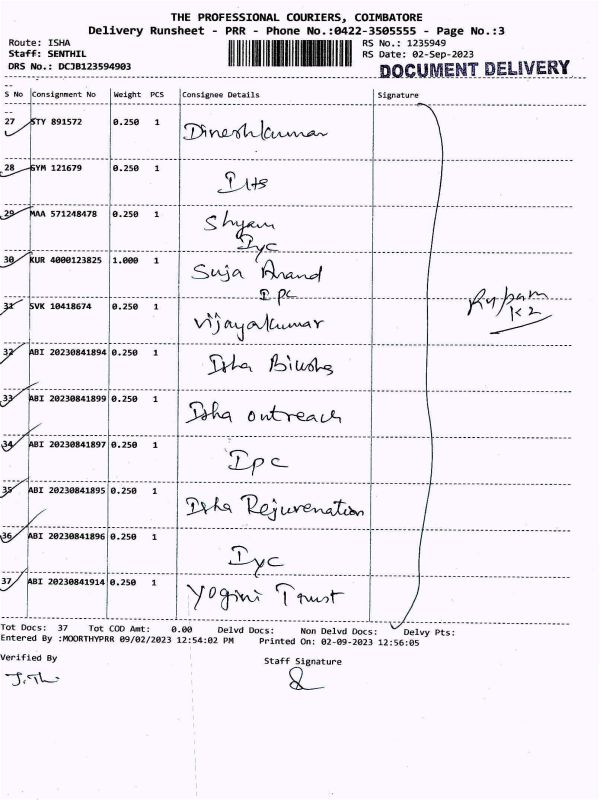 THE PROFESSIONAL COURIERS, COIMBATORE
Delivery Runsheet - PRR - Phone No.:0422-3505555 - Page No.:3
Route: ISHA RS No.: 1235949
Staff: SENTHIL RS Date: 02-Sep-2023
DRS No.: DCJB123594903 DOCUMENT DELIVERY
S No Consignment No Weight PCS Consignee Details Signature
27 STY 891572 0.250 1 Dineshkumar
28 GYM 121679 0.250 1
29 MAA 571248478 0.250 1 Shyam
Iyc
30 KUR 4000123825 1.000 1 Suja Anand
Ipc
31 SVK 10418674 0.250 1 Vijayakumar
32 ABI 20230841894 0.250 1 Isha
33 ABI 20230841899 0.250 1 Isha outreach
34 ABI 20230841897 0.250 1 Ipc
35 ABI 20230841895 0.250 1 Isha Rejuvenation
36 ABI 20230841896 0.250 1 Iyc
37 ABI 20230841914 0.250 1 Yogini Trust
Tot Docs: 37 Tot COD Amt: 0.00 Delvd Docs: Non Delvd Docs: Delvy Pts:
Entered By :MOORTHYPRR 09/02/2023 12:54:02 PM Printed On: 02-09-2023 12:56:05
Verified By Staff Signature